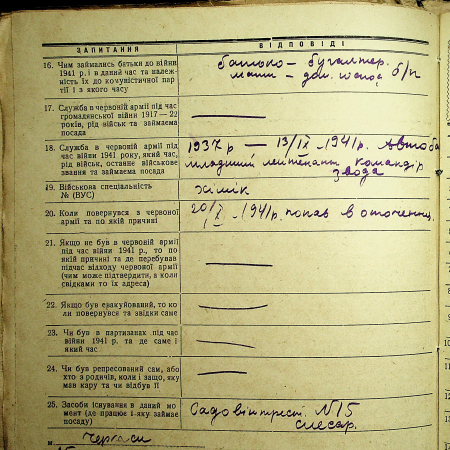 ЗАПИТАННЯ
ВІДПОВІДІ
16. Чим займались батьки до війни
1941 р. і в даний час та належ-
ність їх до комуністичної пар-
тії і з якого часу
батько – бугалтер.
мати – дом. б/п
17. Служба в червоній армії під час
громадянської війни 1917—22
років, рід військ та займаєма
посада
18. Служба в червоній армії під
час війни 1941 року, який час,
рід військ, останнє військове
звання та займаєма посада
1937 р — 13/IX .1941р. Автоба
младший лейтенант командір
звода
19. Військова спеціальність
№ (ВУС)
хімік
20. Коли повернувся з червоної
армії та по якій причині
20/IX .1941р. попав в оточення.
21. Якщо не був в червоній армії
під час війни 1941 р., то по
якій причині та де перебував
підчас відходу червоної армії
(чим може підтвердити, а коли
свідками то їх адреса)
22. Якщо був евакуйований, то ко-
ли повернувся та звідки саме
23. Чи був в партизанах під час
війни 1941 р. та де саме і
який час
24. Чи був репресований сам, або
хто з родичів, коли і защо, яку
мав кару та чи відбув її
25. Засоби існування в даний мо-
мент (де працює і яку займає
посаду)
№15
слесар.
м. Черкаси